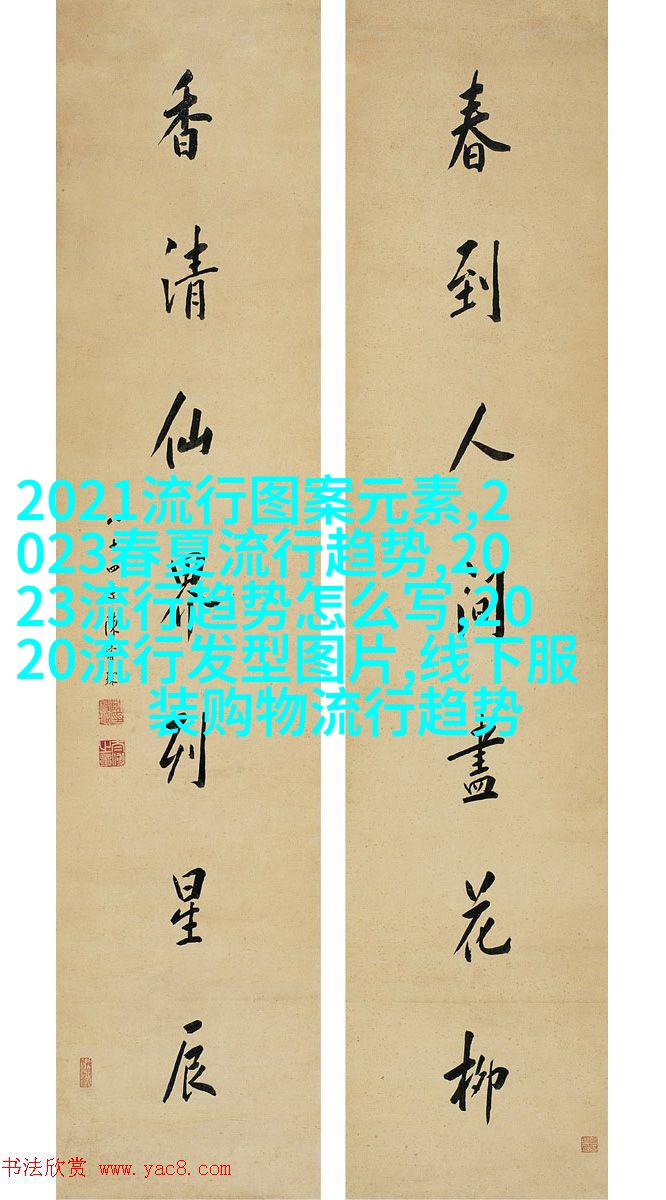 春到人間盡花柳
香清仙界列星辰
2021流行图案元素,2
023春夏流行趋势,20
23流行趋势怎么写,20
20流行发型图片,线下服
装购物流行趋势
书法欣赏 www.yac8.com